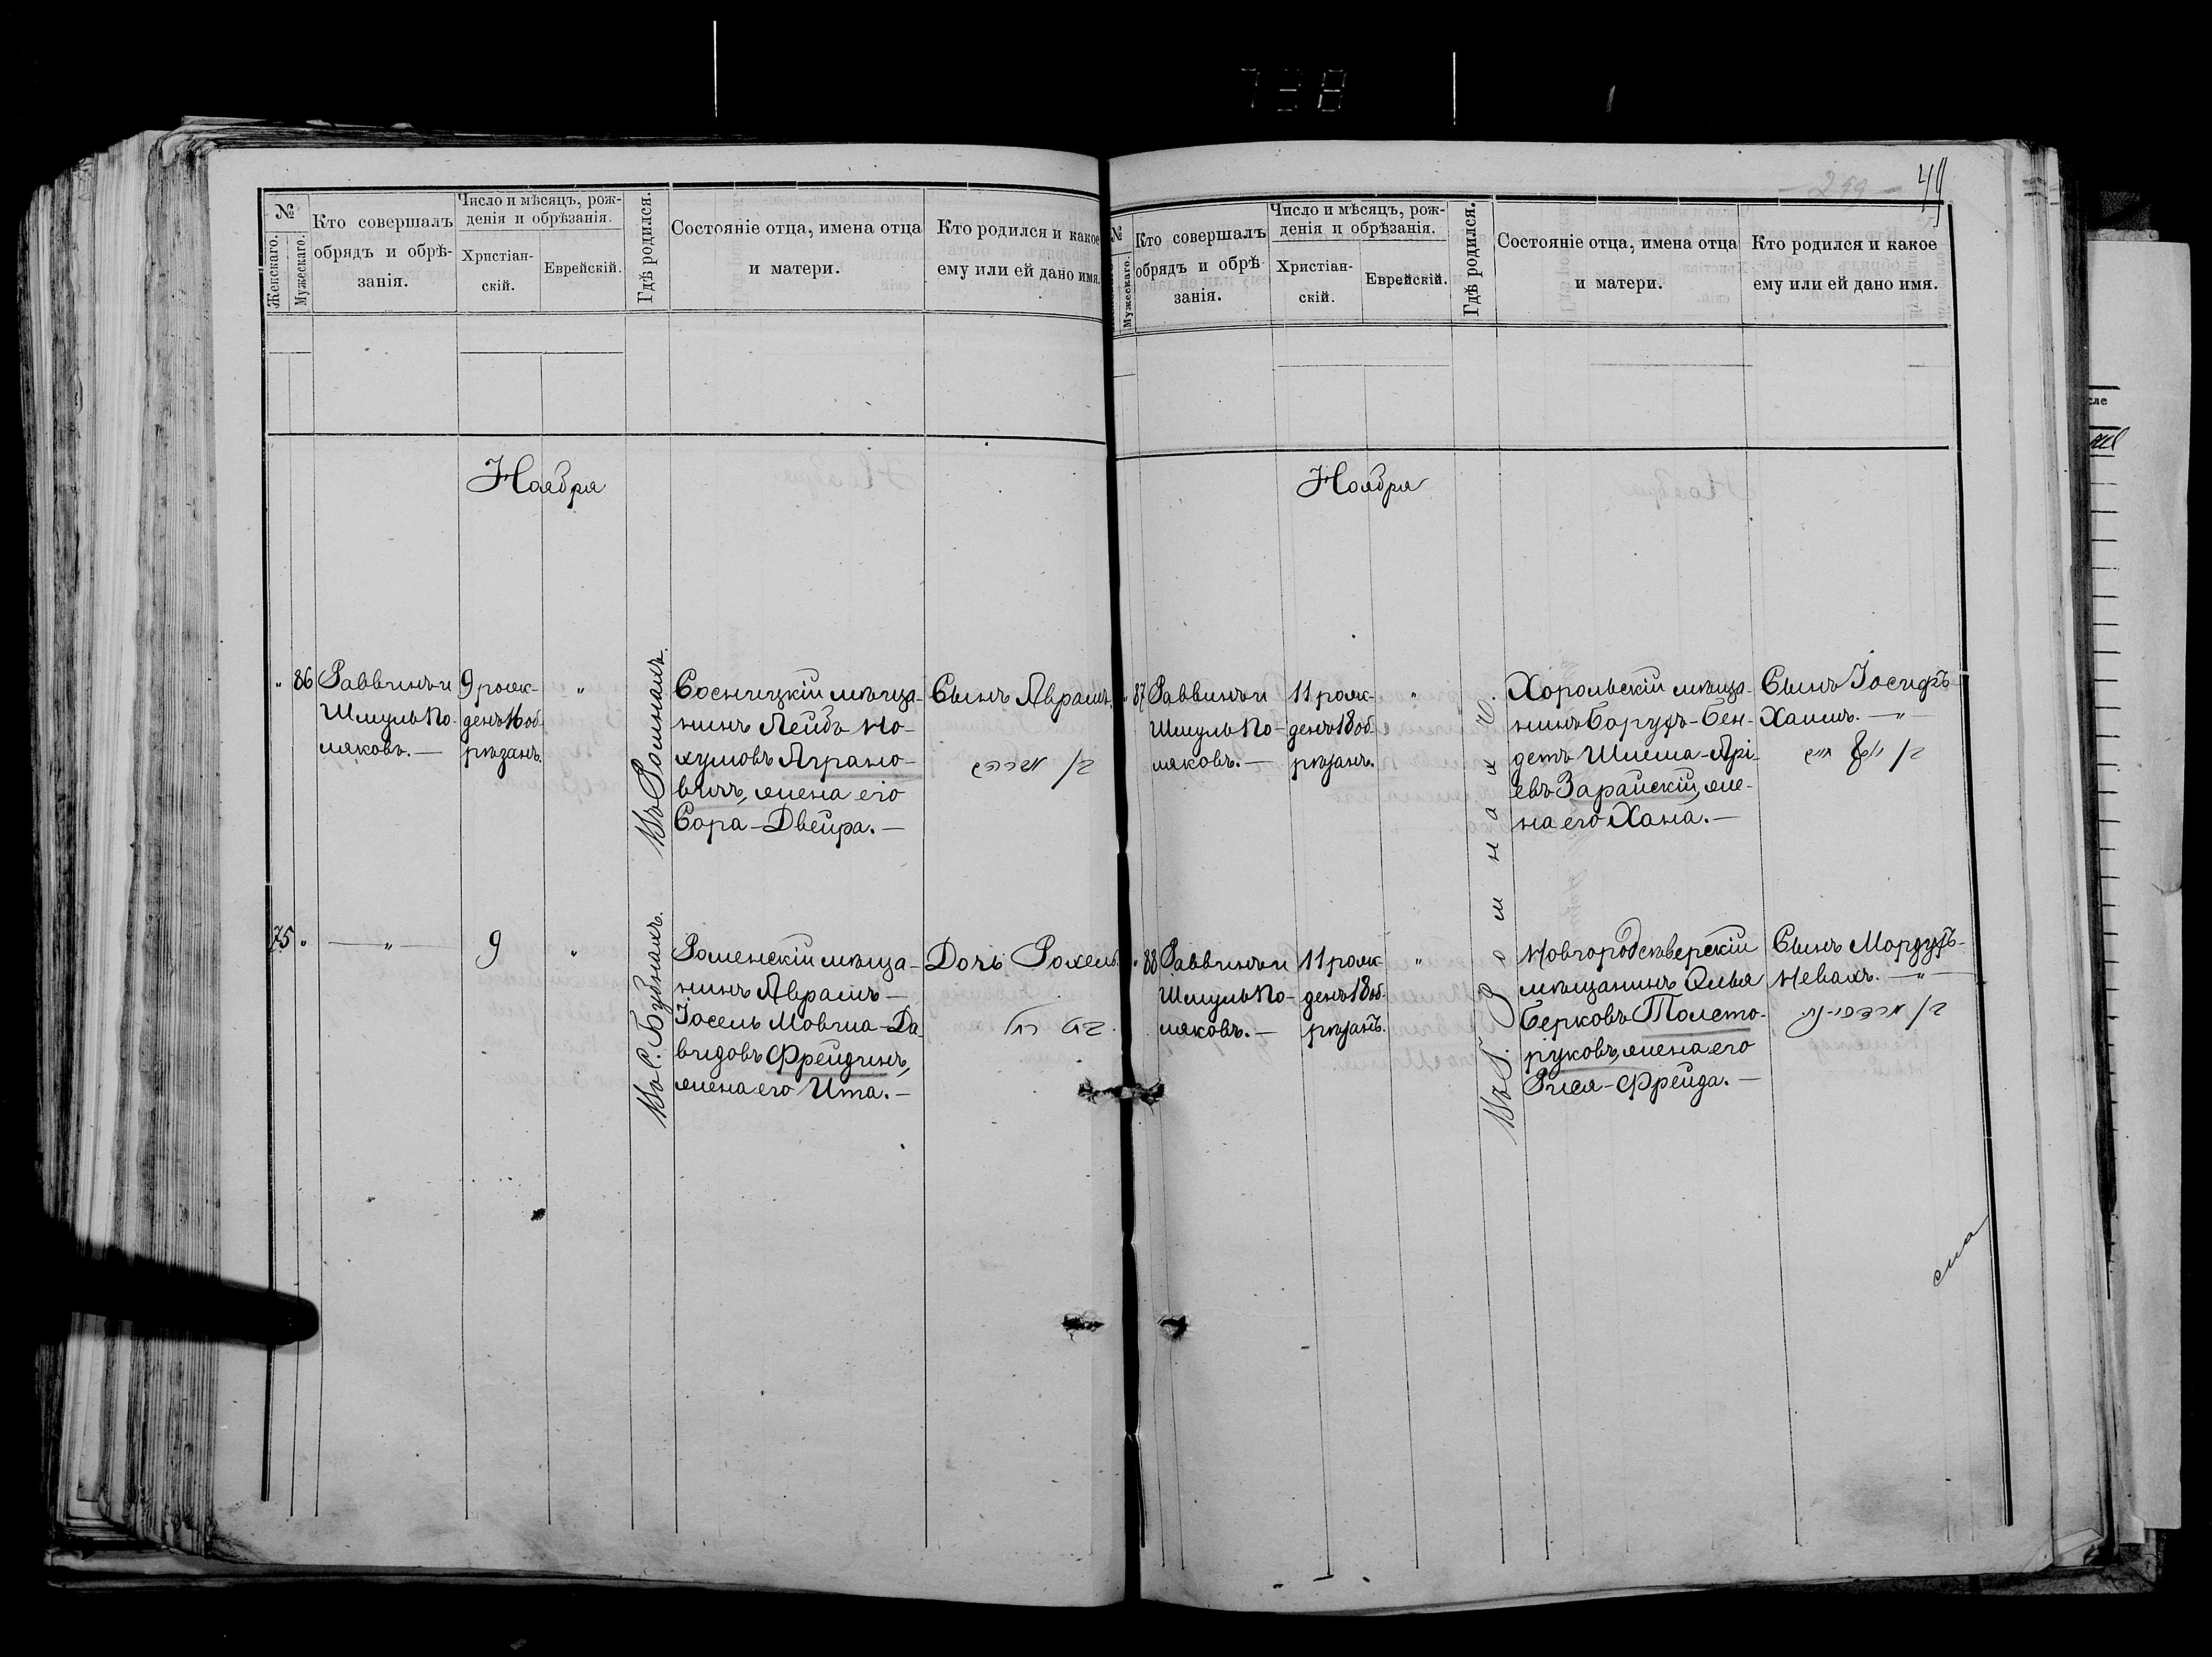 738
1
№
Женскаго.
Мужескаго.
Кто совершалъ
обрядъ и обрѣ-
занія.
Число и мѣсяцъ, рож-
денія и обрѣзанія.
Христіан-
скій.
Еврейскій.
Гдѣ родился.
Состояніе отца, имена отца
и матери.
Кто родился и какое
ему или ей дано имя.
Ноября
" 86
Раввинъ и
Шмуль По-
ляковъ. —
9 рож-
денъ 16 об
рѣзанъ.
"
Въ Ромнахъ.
Сосницкій мѣща-
нинъ Лейбъ Но-
хумовъ Аграно-
вичъ, жена его
Сора-Двейра. —
Сынъ Аврамъ.
75 "
— " —
9
"
Въ С. Буднахъ.
Роменскій мѣща-
нинъ Аврамъ —
Іосель Мовша-Да-
видовъ Фрейдинъ,
жена его Ита. —
Дочь Рохель.
259
49
№
Мужескаго.
Кто совершалъ
обрядъ и обрѣ
занія.
Число и мѣсяцъ, рож-
денія и обрѣзанія.
Христіан-
скій.
Еврейскій.
Гдѣ родился.
Состояніе отца, имена отца
и матери.
Кто родился и какое
ему или ей дано имя.
Ноября
" 87
Раввинъ и
Шмуль По-
ляковъ. —
11 рож-
денъ 18 об
рѣзанъ.
"
Въ Г. Ромнахъ.
Хорольскій мѣща-
нинъ Борухъ-Бен-
детъ Шлема-Арі-
евъ Зарайскій, же-
на его Хана. —
Сынъ Іосифъ
Хаимъ. — " —
" 88
Раввинъ и
Шмуль По-
ляковъ. —
11 рож-
денъ 18 об.
рѣзанъ.
"
Новгородсѣверскій
мѣщанинъ Элья
Берковъ Толсто-
руковъ, жена его
Рися-Фрейда. —
Сынъ Мордухъ-
Невахъ. — " —